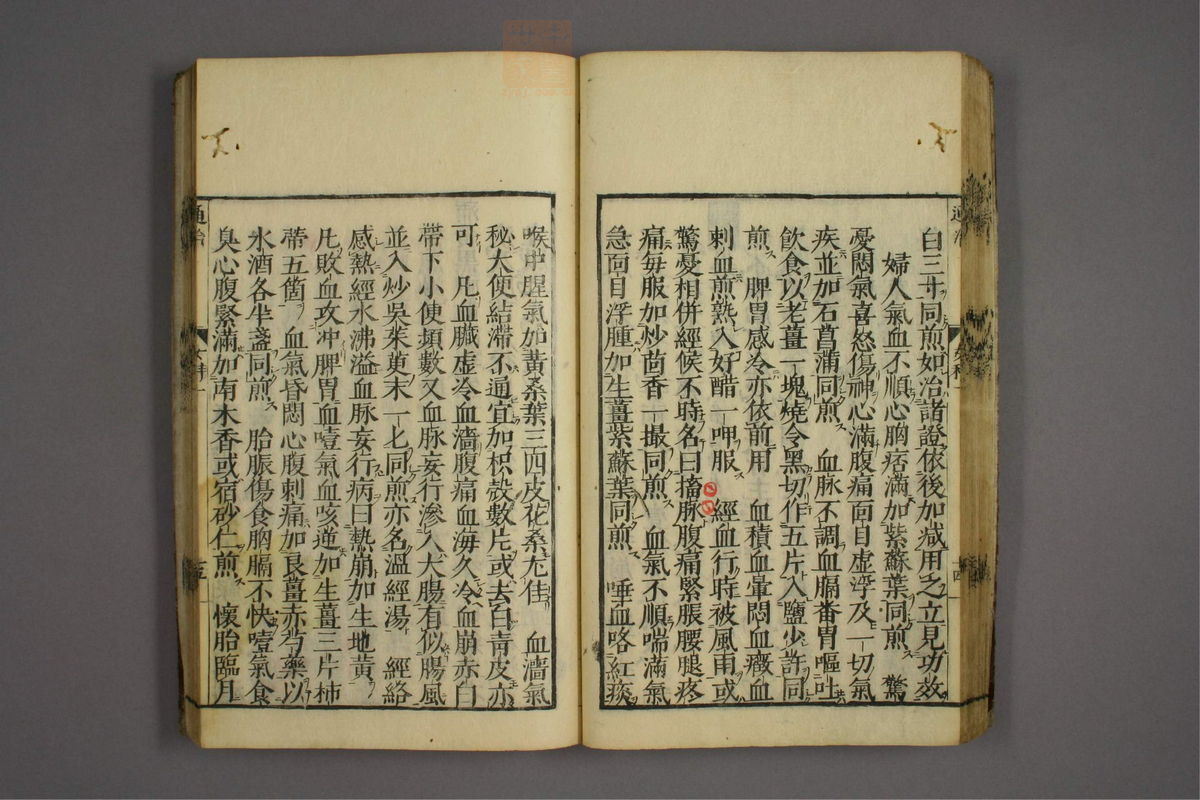 白三寸同煎如治諸證依後加減用之立見功效
婦人氣血不順心胸痞滿加紫蘇葉同煎　驚
憂悶氣喜怒傷神心滿腹痛面目虛浮及一切氣
疾並加石菖蒲同煎　血脉不調血膈畨胃嘔吐
飲食以老薑一塊燒令黑切作五片入鹽少許同
煎　脾胃感冷亦依前用　血積血暈悶血癥血
刺血煎熟入好醋一呷服　經血行時被風雨或
驚憂相併經候不時名曰搐脉腹痛緊脹腰腿疼
痛毎服加炒茴香一撮同煎　血氣不順喘滿氣
急面目浮腫加生薑紫蘇葉同煎　唾血咯紅痰
喉中腥氣加黃桑葉三四皮花桑尤佳　血濇氣
秘大便結滯不通宜加枳殼數片或去白青皮亦
可　凡血臟虛冷血濇腹痛血海久冷血崩赤白
帶下小便頻數又血脉妄行滲入大腸有似腸風
並入炒吳茱萸末一匕同煎亦名溫經湯　經絡
感熱經水沸溢血脉妄行病曰熱崩加生地黃
凡敗血攻冲脾胃血噎氣血咳逆加生薑三片柿
蒂五箇　血氣昏悶心腹刺痛加良薑赤芍藥以
水酒各半盞同煎　胎脹傷食胸膈不快噎氣食
臭心腹緊滿加南木香或宿砂仁煎　懷胎臨月
通治
通治
女科一
十四